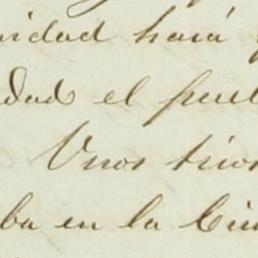 nidad hará
dad el pue
Unos tiros
ba en la Ciu